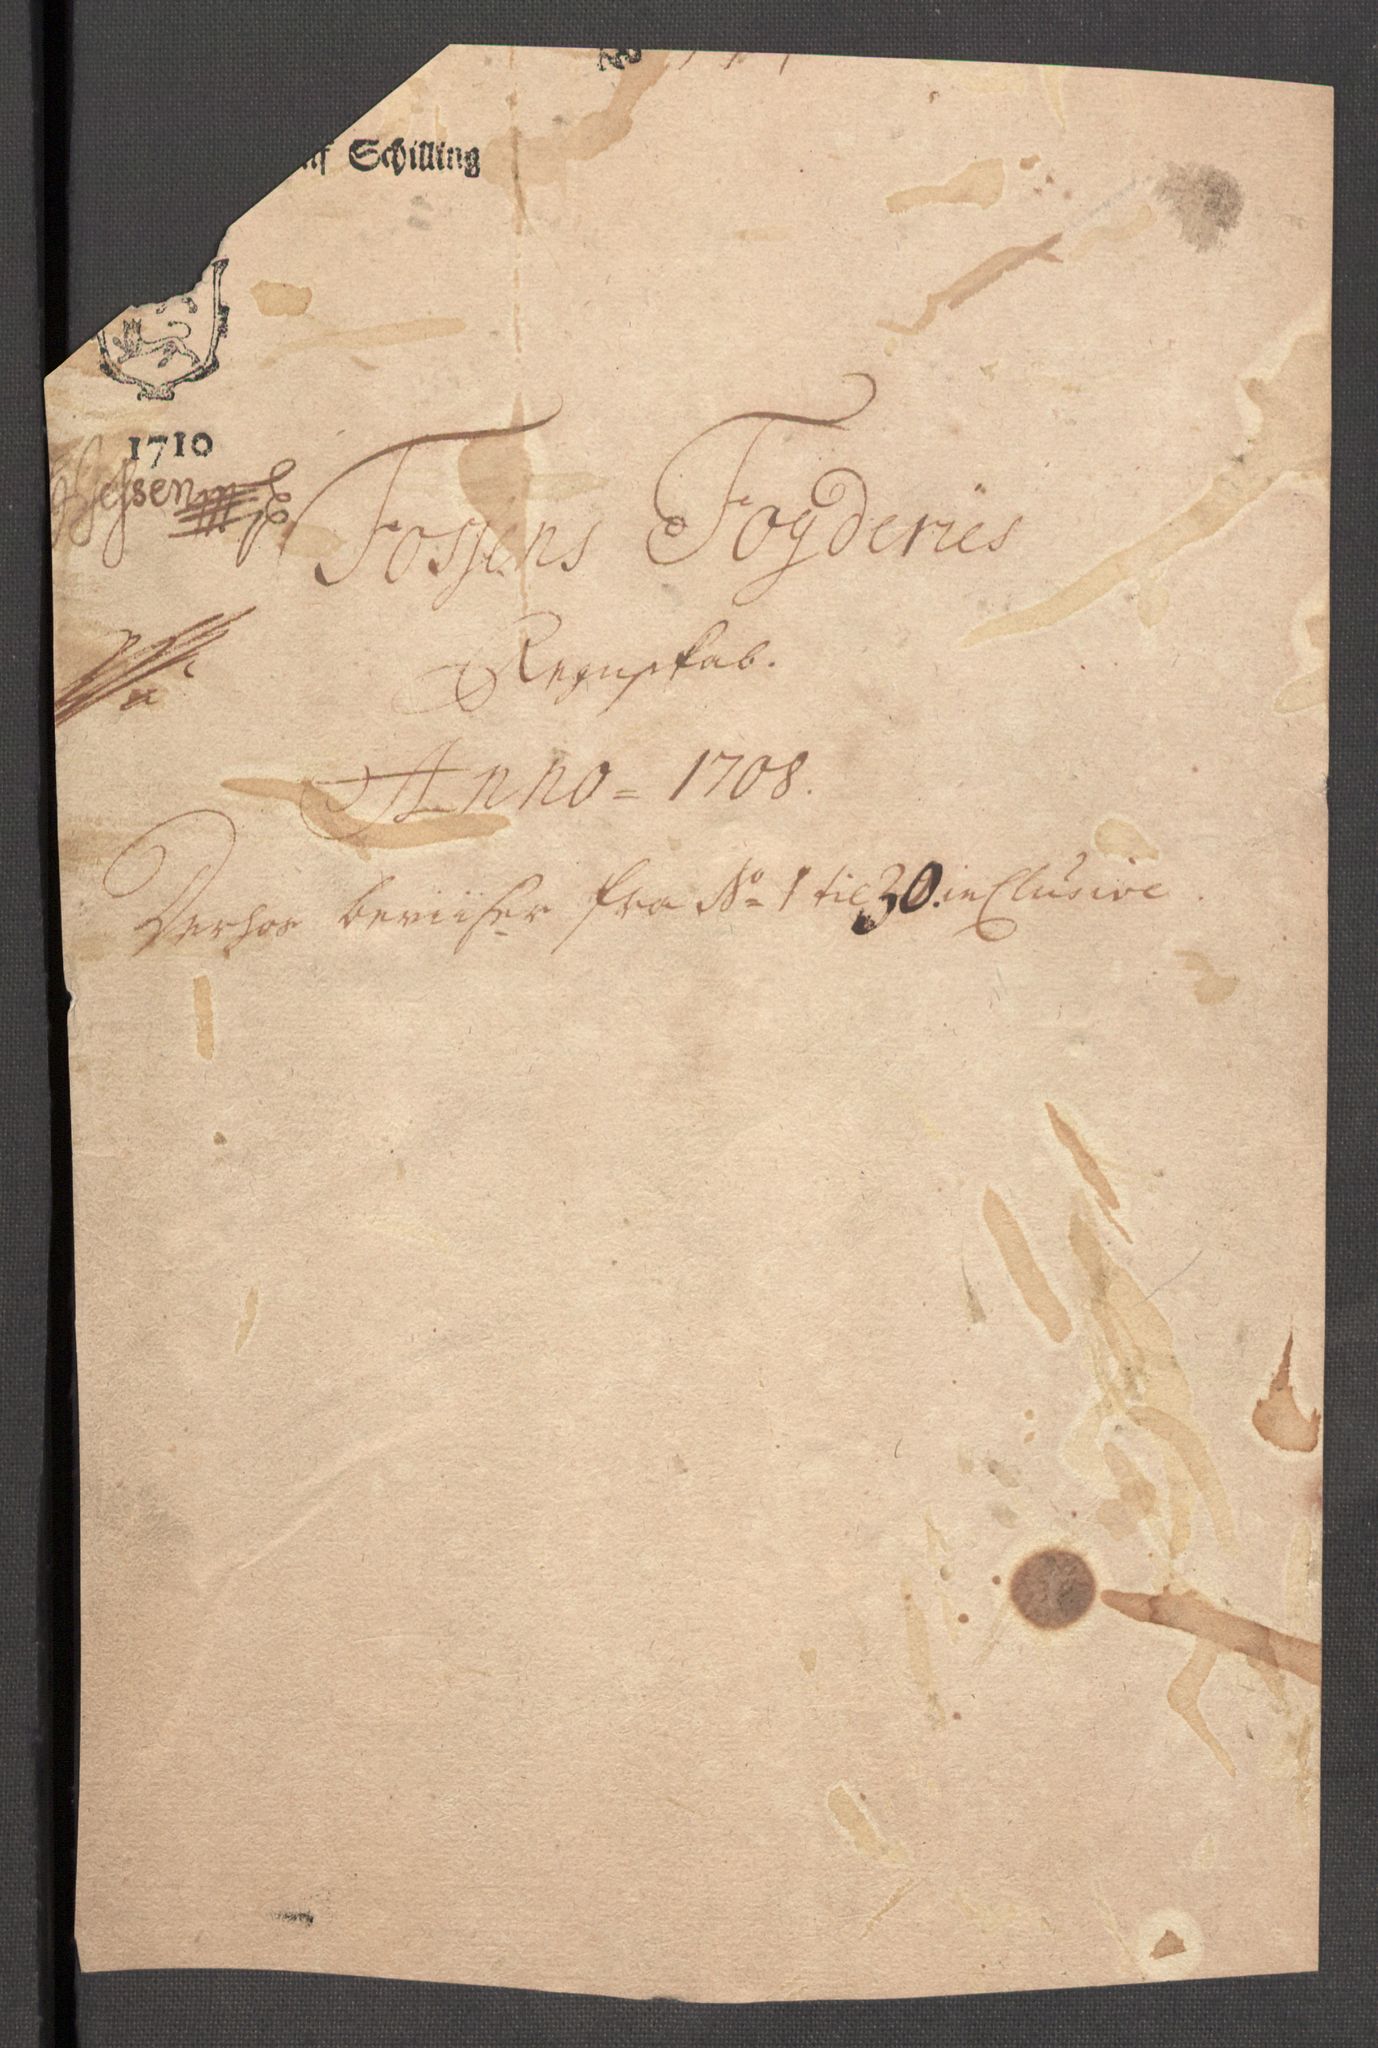 Schilling
1710
Fossens Fogderies
Regnskab.
Anno = 1708.
Verhos beviiser fra No 1 til 30. inClusive.